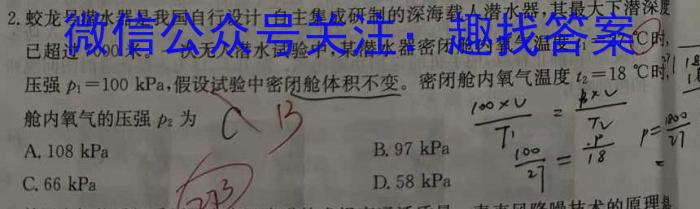 2. 蛟龙号潜水器是我国自行设计、自主集成研制的深海载人潜水器,其最大下潜深度
微信公众号关注:趣找答案
已超过 000米。 次无人潜水试验中,某潜水器密闭舱内氧气温度 ℃时,
压强 p₁=100 kPa,假设试验中密闭舱体积不变。密闭舱内氧气温度 t₂=18 ℃时,
舱内氧气的压强 p₂ 为
C B
A. 108 kPa
B. 97 kPa
C. 66 kPa
D. 58 kPa
100×V/T₁ = p×V/T₂
100/27 = p/18
p=1800/27
273
降噪技术的原理是